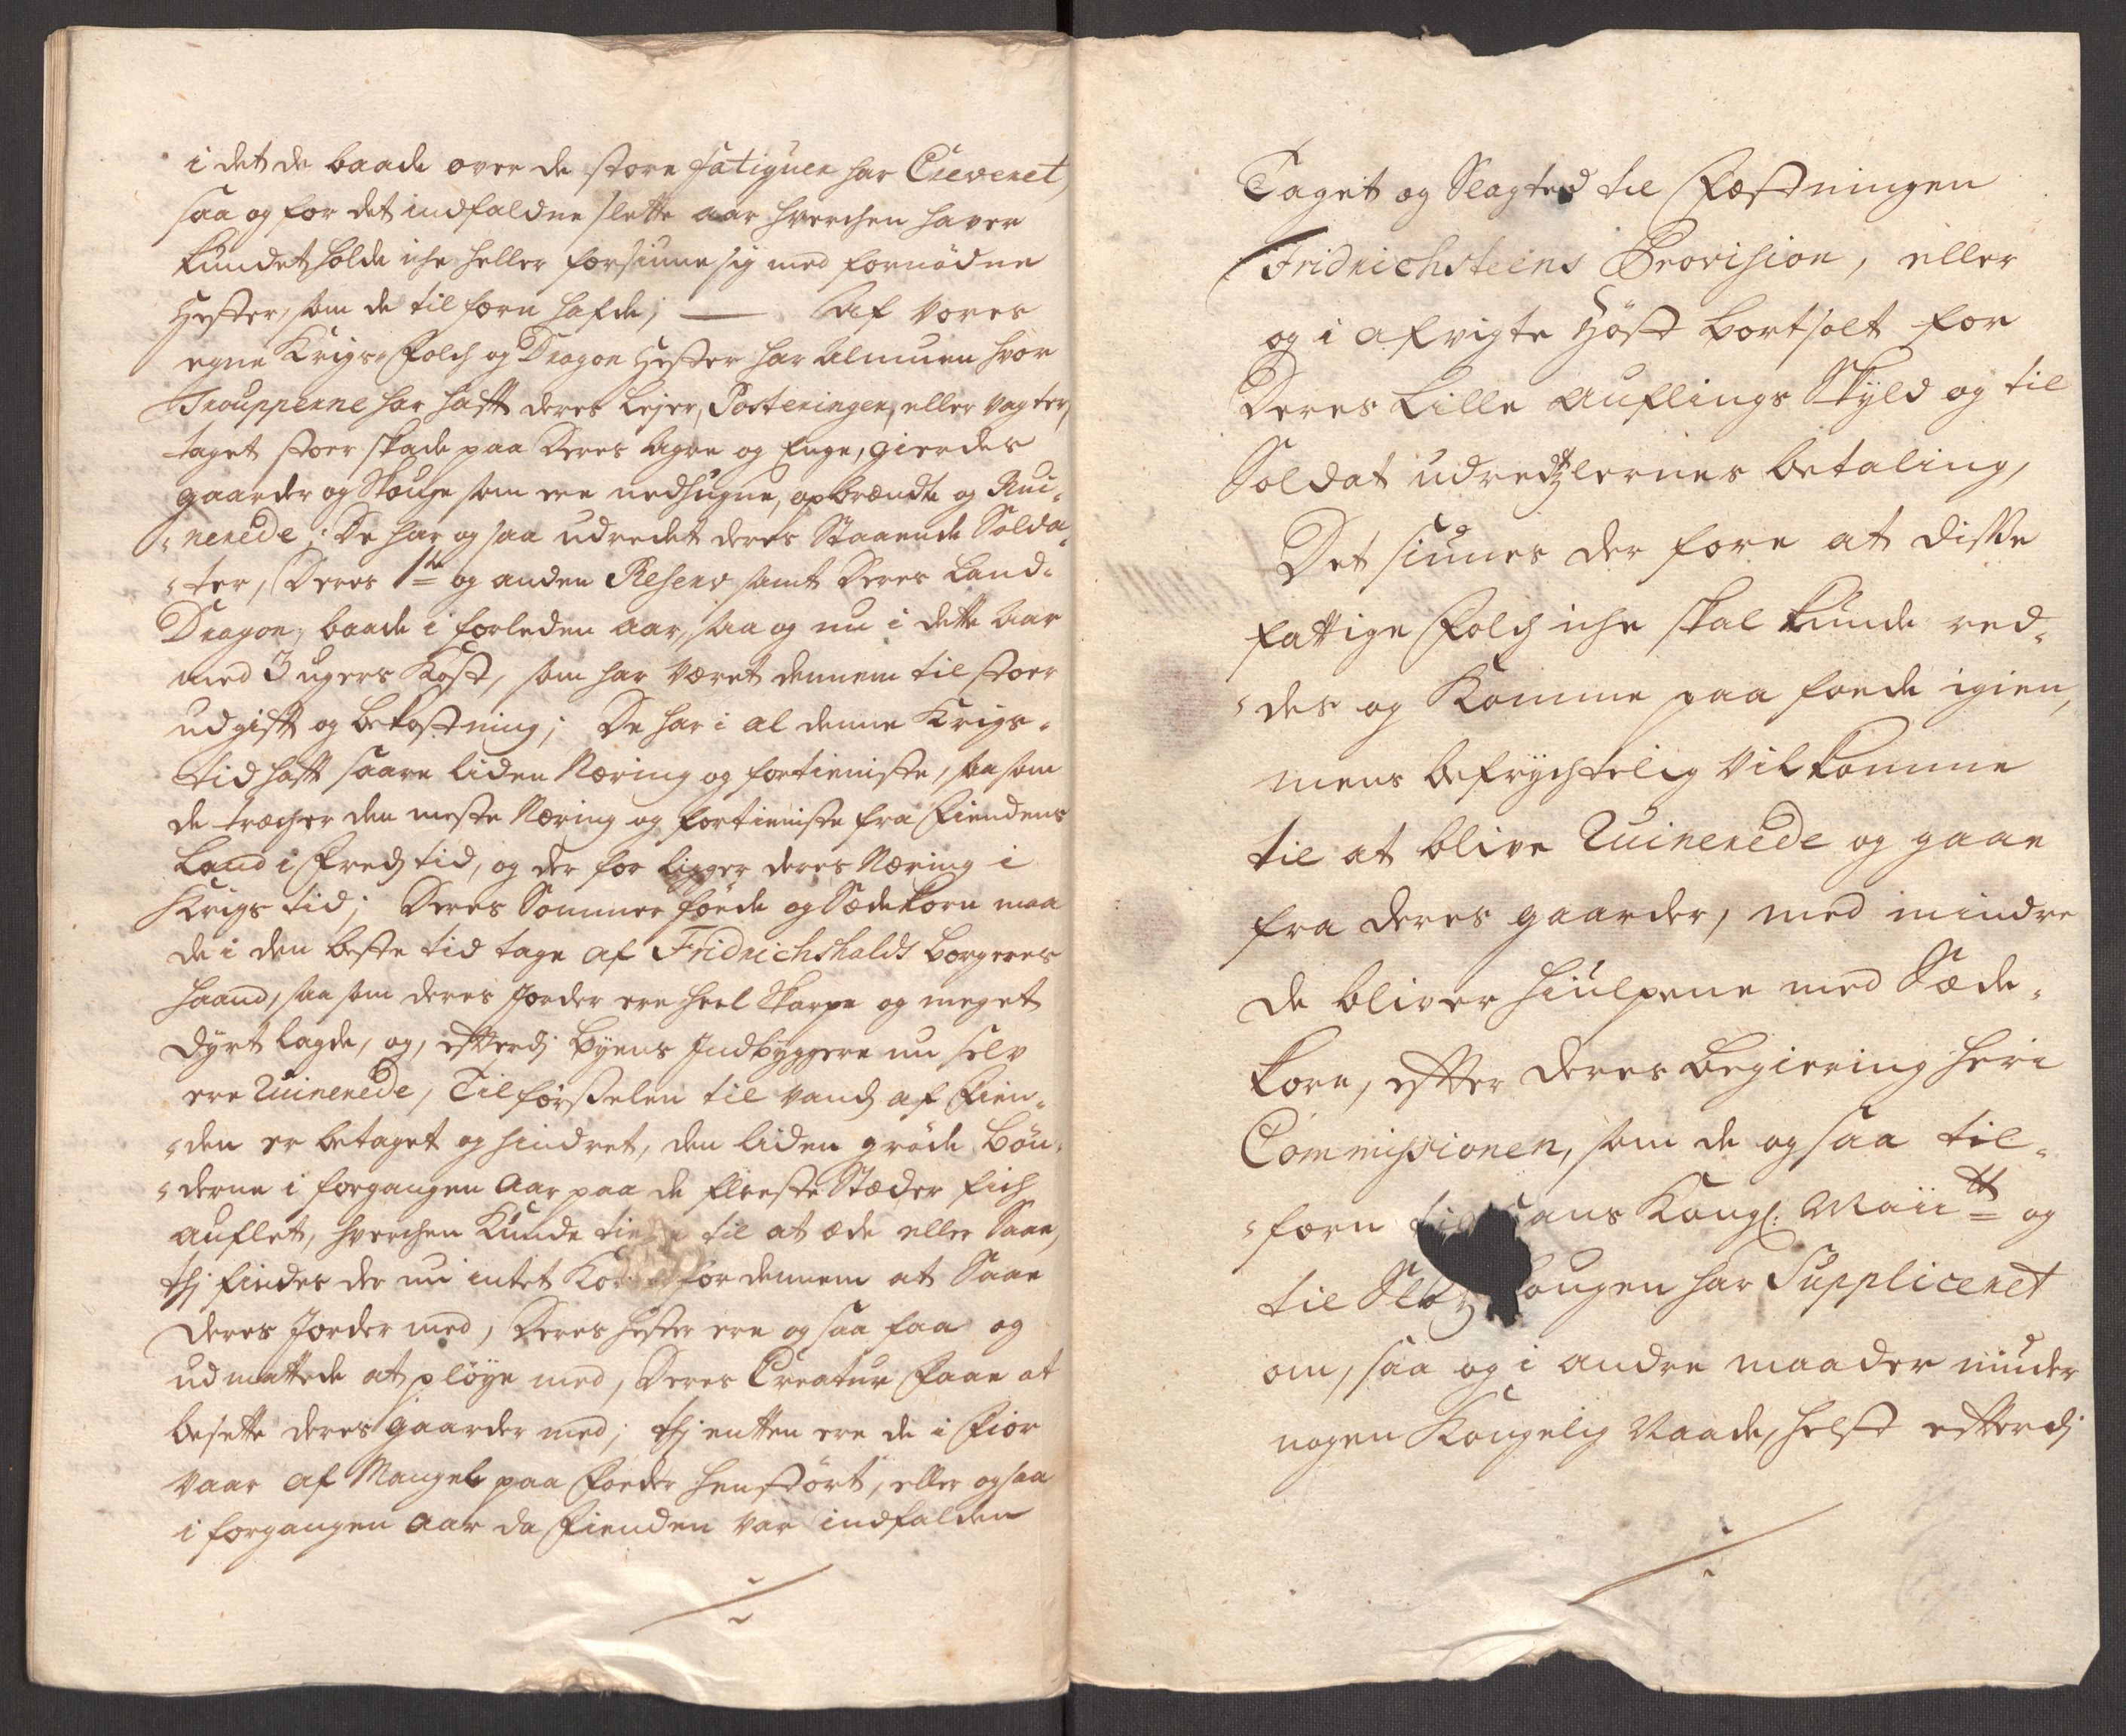 i det de baade over de store fatiguer har Creveret,
saa og for det indfaldne slette aar hverchen haver
kundet holde iche heller forsiune sig med fornødne
Hester, som de tilforn hafde; — Af vores
egne Krigs-Folch og Dragon Hester har Almuen hvor
Troupperne har hafft deres Lejer, Posteringer, eller Vagter,
taget stoer skade paa Deres Agre og Enge, gierdes
gaarder og Skouge som ere nedhugne, opbrændte og Rui-
nerede; De har og saa udredet deres Staaende Solda-
ter, Deres 1te og anden Reserv samt Deres Land-
Dragon, baade i forleden aar, saa og nu i dette Aar
med 3 ugers Kost, som har været dennem til stoer
udgifft og bekostning; De har i al denne Krigs-
tid hafft saare liden Næring og fortieniste, saa som
de træcher den meste Næring og fortieniste fra Fiendens
Land i Freds tid, og der for ligger deres Næring i
Krigs tid; Deres Sommer føede og Sædekorn maa
de i den beste tid tage af Fridrichshalds borgeres
haand, saa som deres Jorder ere heel Skarpe og meget
dyrt lagde, og, efterdj Byens Indbyggere nu selv
ere Ruinerede, Tilførselen til Vands af Fien-
den er betaget og hindret, den liden grøde Bøn-
derne i forgangen Aar paa de fleeste Stæder fich
auflet, hverchen Kunde til at æde eller Saae,
thj findes der nu intet for dennem at Saae
Deres Jorder med, Deres hester ere og saa faa og
udmattede at pløye med, Deres Creatur faae at
besette deres gaarder med; thj entten ere de i Fior
vaar af Mangel paa Foeder henstørt, eller ogsaa
i forgangen Aar da Fienden var indfalden
Taget og Slagted til Fæstningen
Fridrichsteens Provision, eller
og i afvigte Høst bortsolt for
Deres Lille auflings Skyld og til
Soldat udredtzlernes betaling,
Det siunes der fore at disse
fattige Folch iche skal kunde red-
des og Komme paa foede igien,
mens befrychtelig vil komme
til at blive Ruinerede og gaae
fra deres gaarder, med mindre
de bliver hiulpene med Sæde-
korn, efter deres begiering her i
Commissionen, som de og saa til-
forn Hans Kongl: Maiitt og
til har Suppliceret
om, saa og i andre maader niuder
nogen Kongelig Naade, helst efterdj